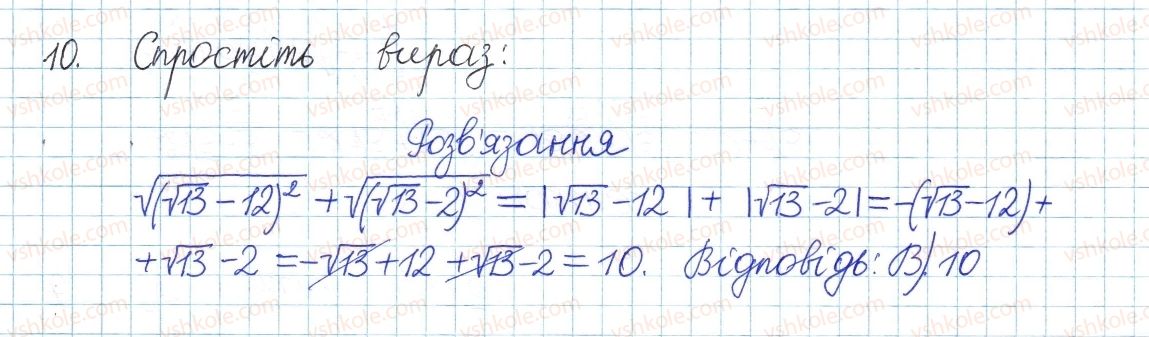 10. Спростіть вираз:
Розв'язання
√(√13 - 12)² + √(√13 - 2)² = |√13 - 12| + |√13 - 2| = -(√13 - 12) +
+ √13 - 2 = -√13 + 12 + √13 - 2 = 10. Відповідь: В) 10